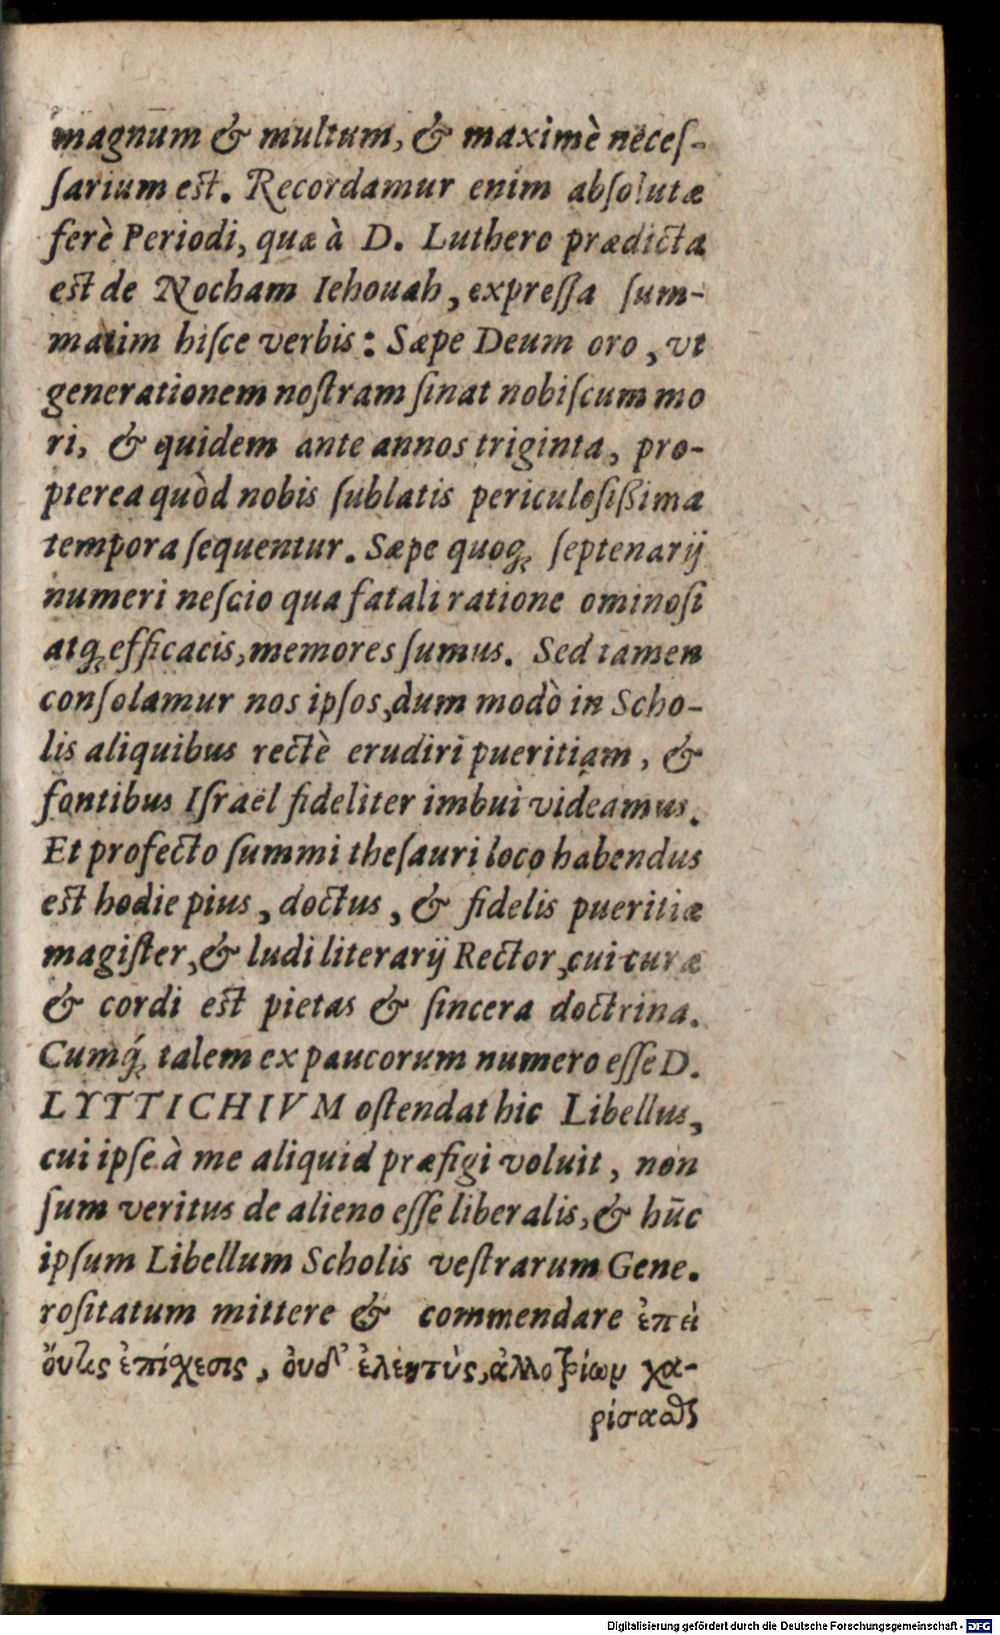 magnum & multum, & maximè neceſ-
ſarium est. Recordamur enim abſolutæ
ferè Periodi, quæ à D. Luthero prædicta
est de Nocham Iehouah, expreſſa ſum-
matim hiſce verbis: Sæpe Deum oro, vt
generationem noſtram ſinat nobiſcum mo
ri, & quidem ante annos triginta, pro-
pterea quòd nobis ſublatis periculoſißima
tempora ſequentur. Sæpe quoq; ſeptenarij
numeri neſcio qua fatali ratione ominoſi
atq; efficacis, memores ſumus. Sed tamen
conſolamur nos ipſos, dum modò in Scho-
lis aliquibus rectè erudiri pueritiam, &
fontibus Iſraël fideliter imbui videamus.
Et profecto ſummi theſauri loco habendus
est hodie pius, doctus, & fidelis pueritiæ
magiſter, & ludi literarij Rector, cui curæ
& cordi est pietas & ſincera doctrina.
Cumq́; talem ex paucorum numero eſſe D.
LYTTICHIVM oſtendat hic Libellus,
cui ipſe à me aliquid præfigi voluit, non
ſum veritus de alieno eſſe liberalis, & hūc
ipſum Libellum Scholis veſtrarum Gene.
roſitatum mittere & commendare ἐπεὶ
ὄυτις ἐπίχεσις, ὀυδ' ἐλεητὺς, ἀλλοτρίωμ χα-
ρίσαωθς
Digitalisierung gefördert durch die Deutsche Forschungsgemeinschaft - DFG